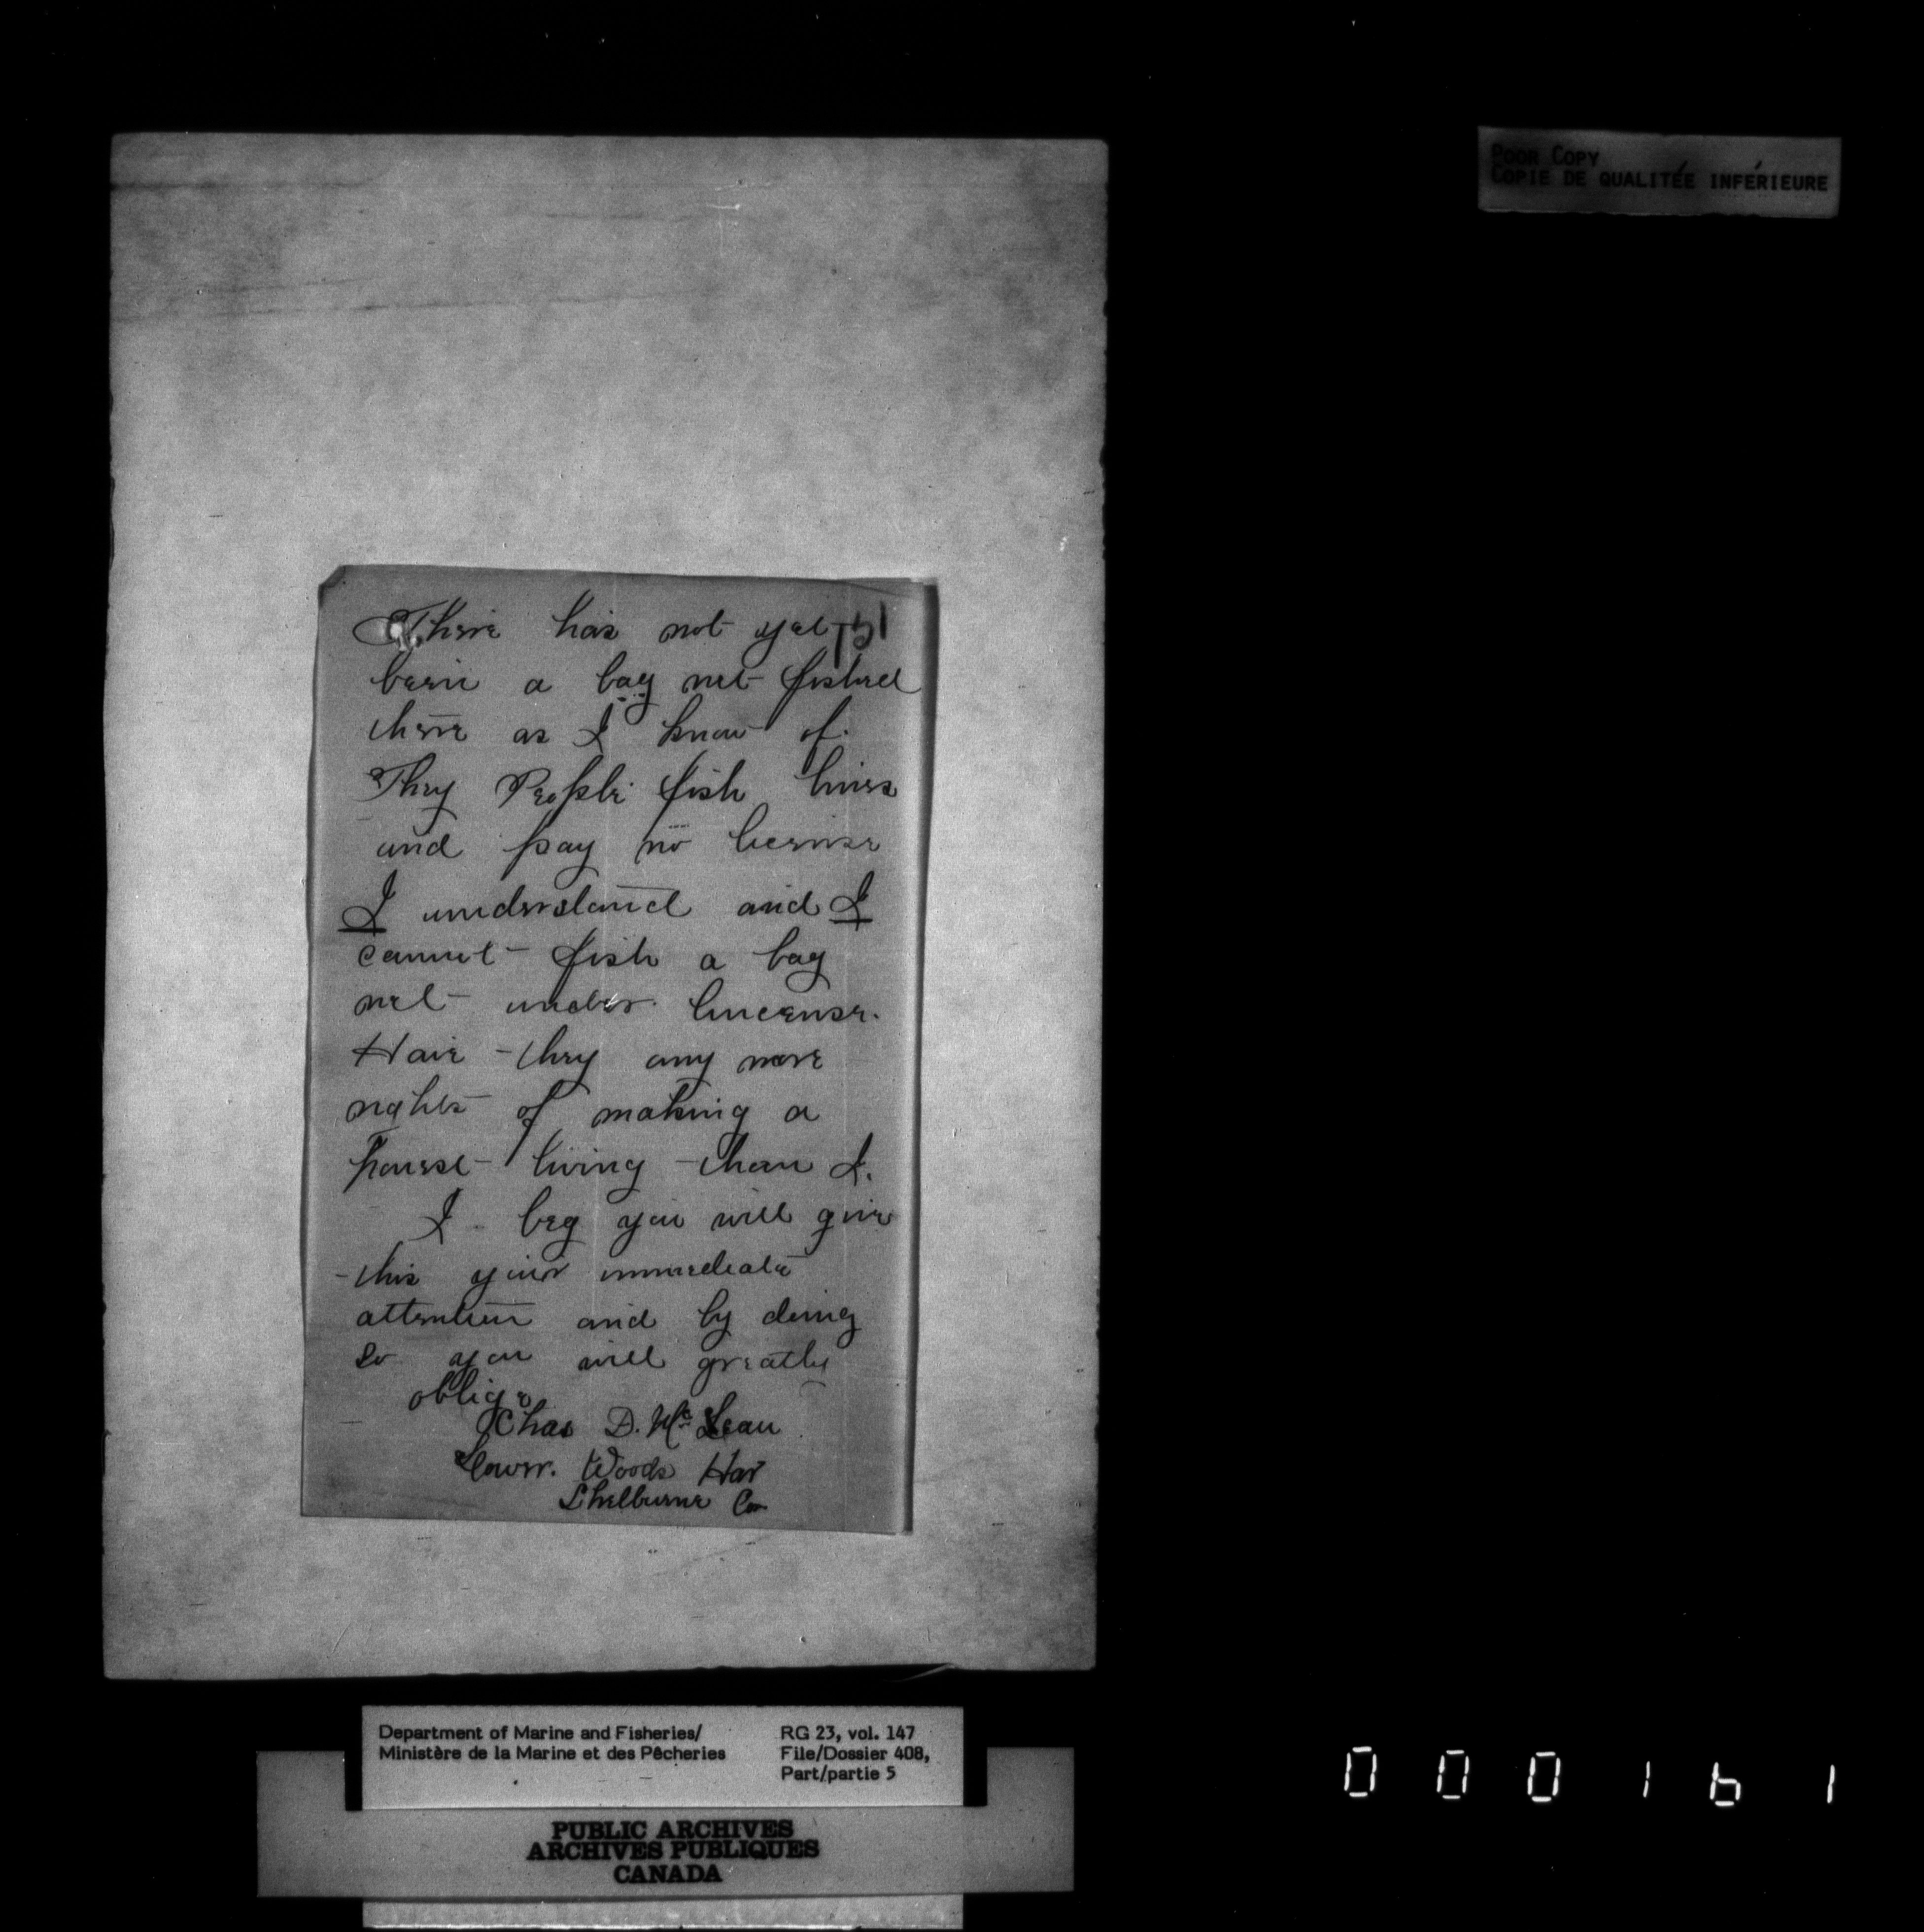 POOR COPY
COPIE DE QUALITÉE INFÉRIEURE
There has not yet 151
been a bag net fished
there as I know of.
They People fish lines
and pay no license
I understand and I
cannot fish a bag
net under lincense.
Have they any more
rights of making a
honest living than I.
I beg you will give
this your immediate
attention and by doing
so you will greatly
oblige
Chas D. Mc Lean
Lower. Woods Har
Shelburne Co
Department of Marine and Fisheries/
Ministère de la Marine et des Pêcheries
RG 23, vol. 147
File/Dossier 408,
Part/partie 5
PUBLIC ARCHIVES
ARCHIVES PUBLIQUES
CANADA
000161